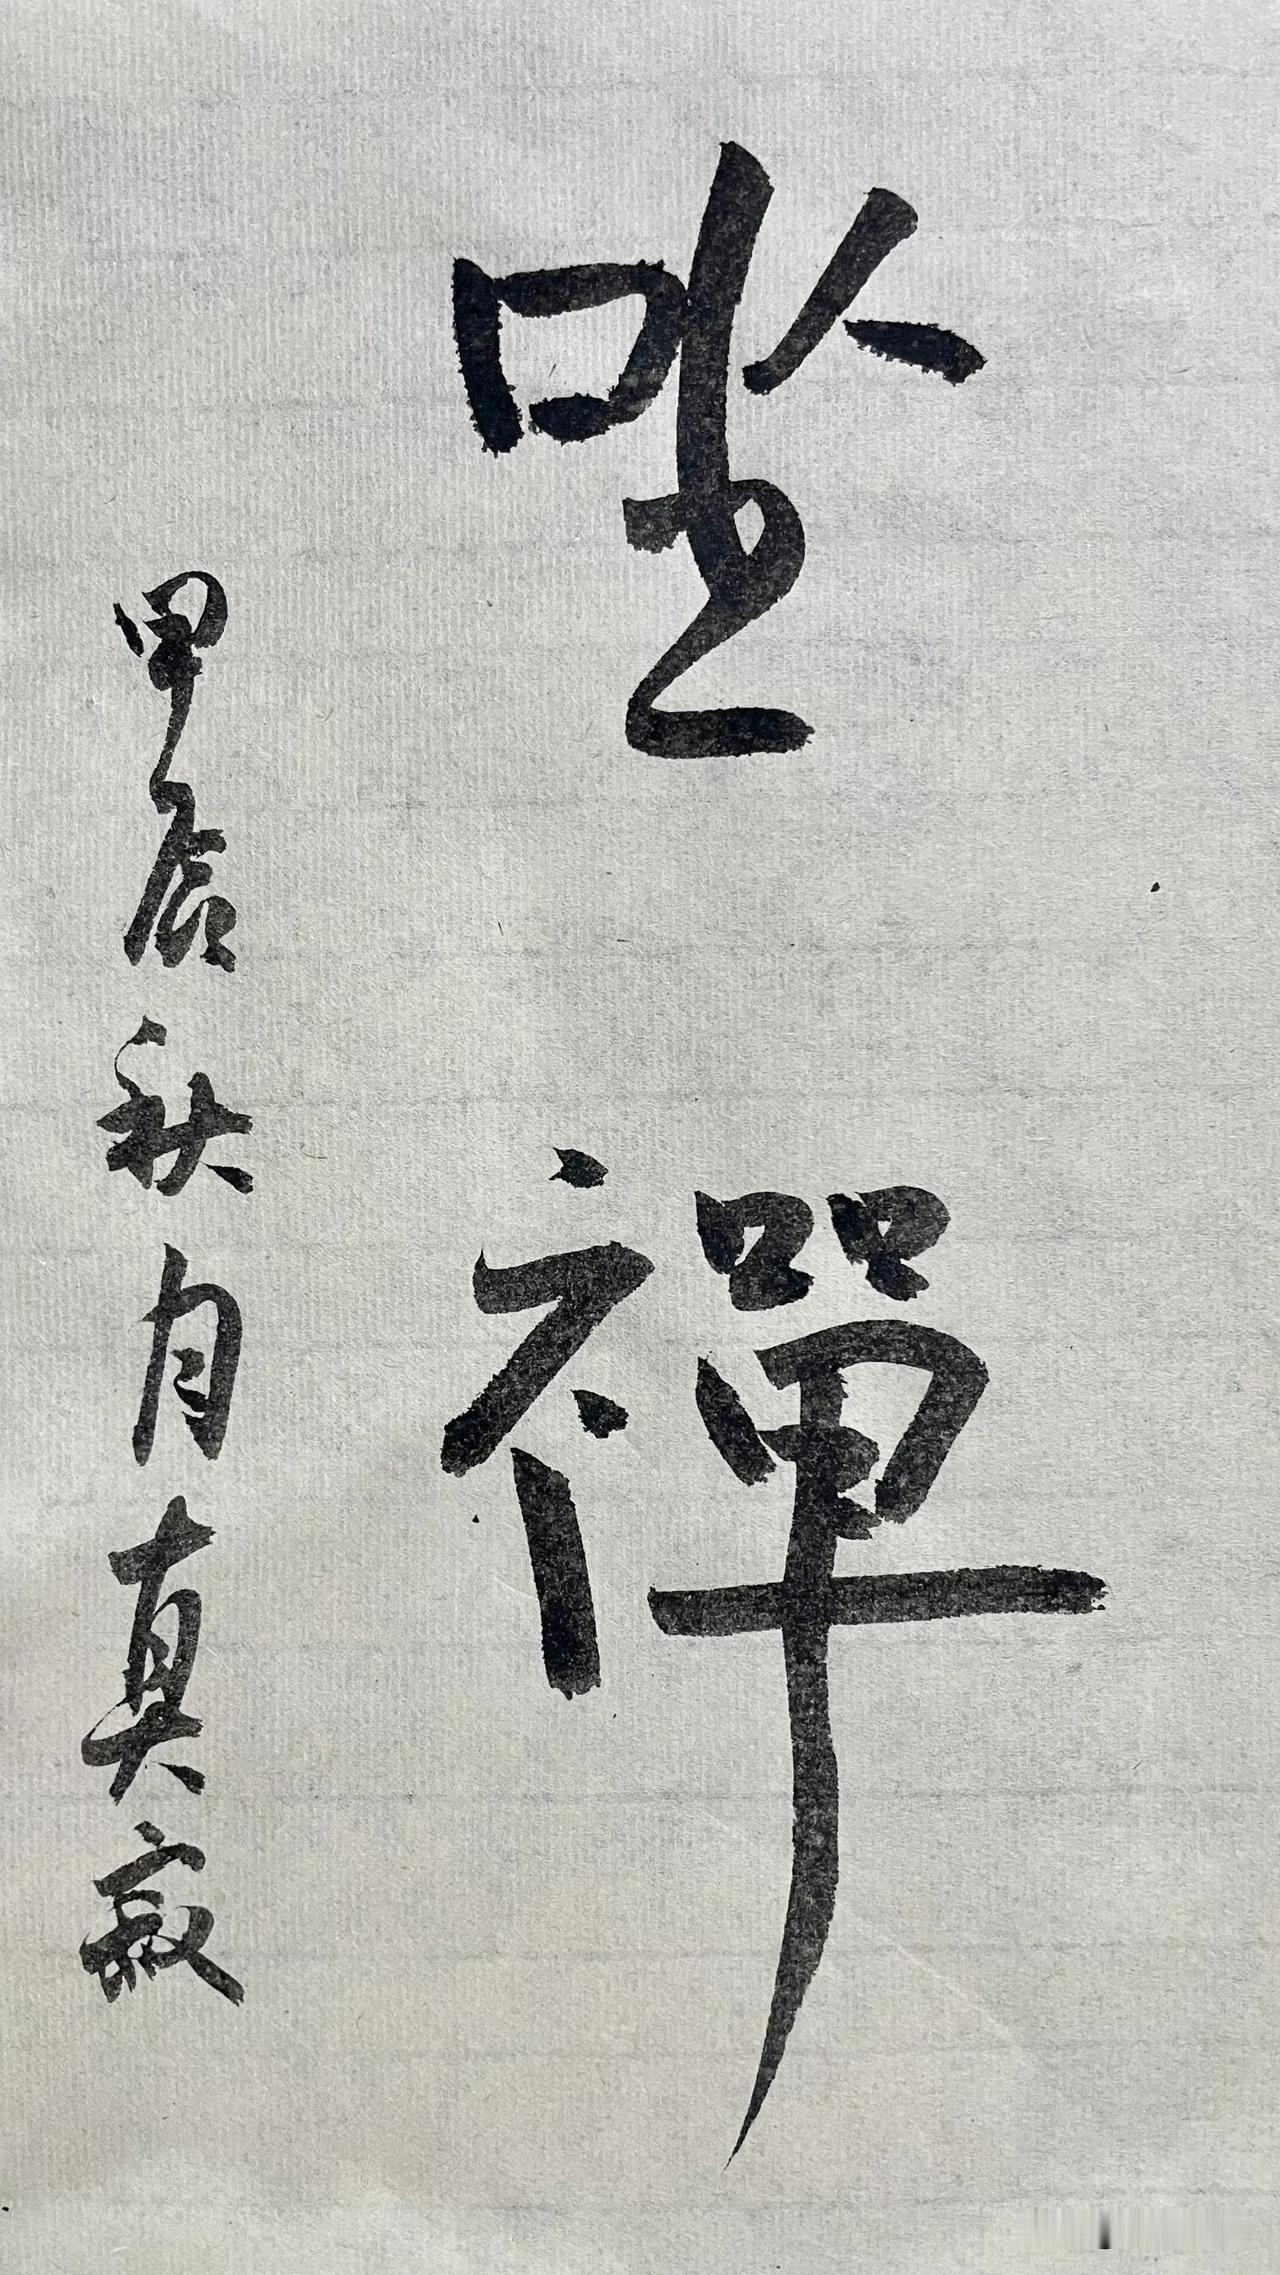 坐禪
甲辰秋月真寂